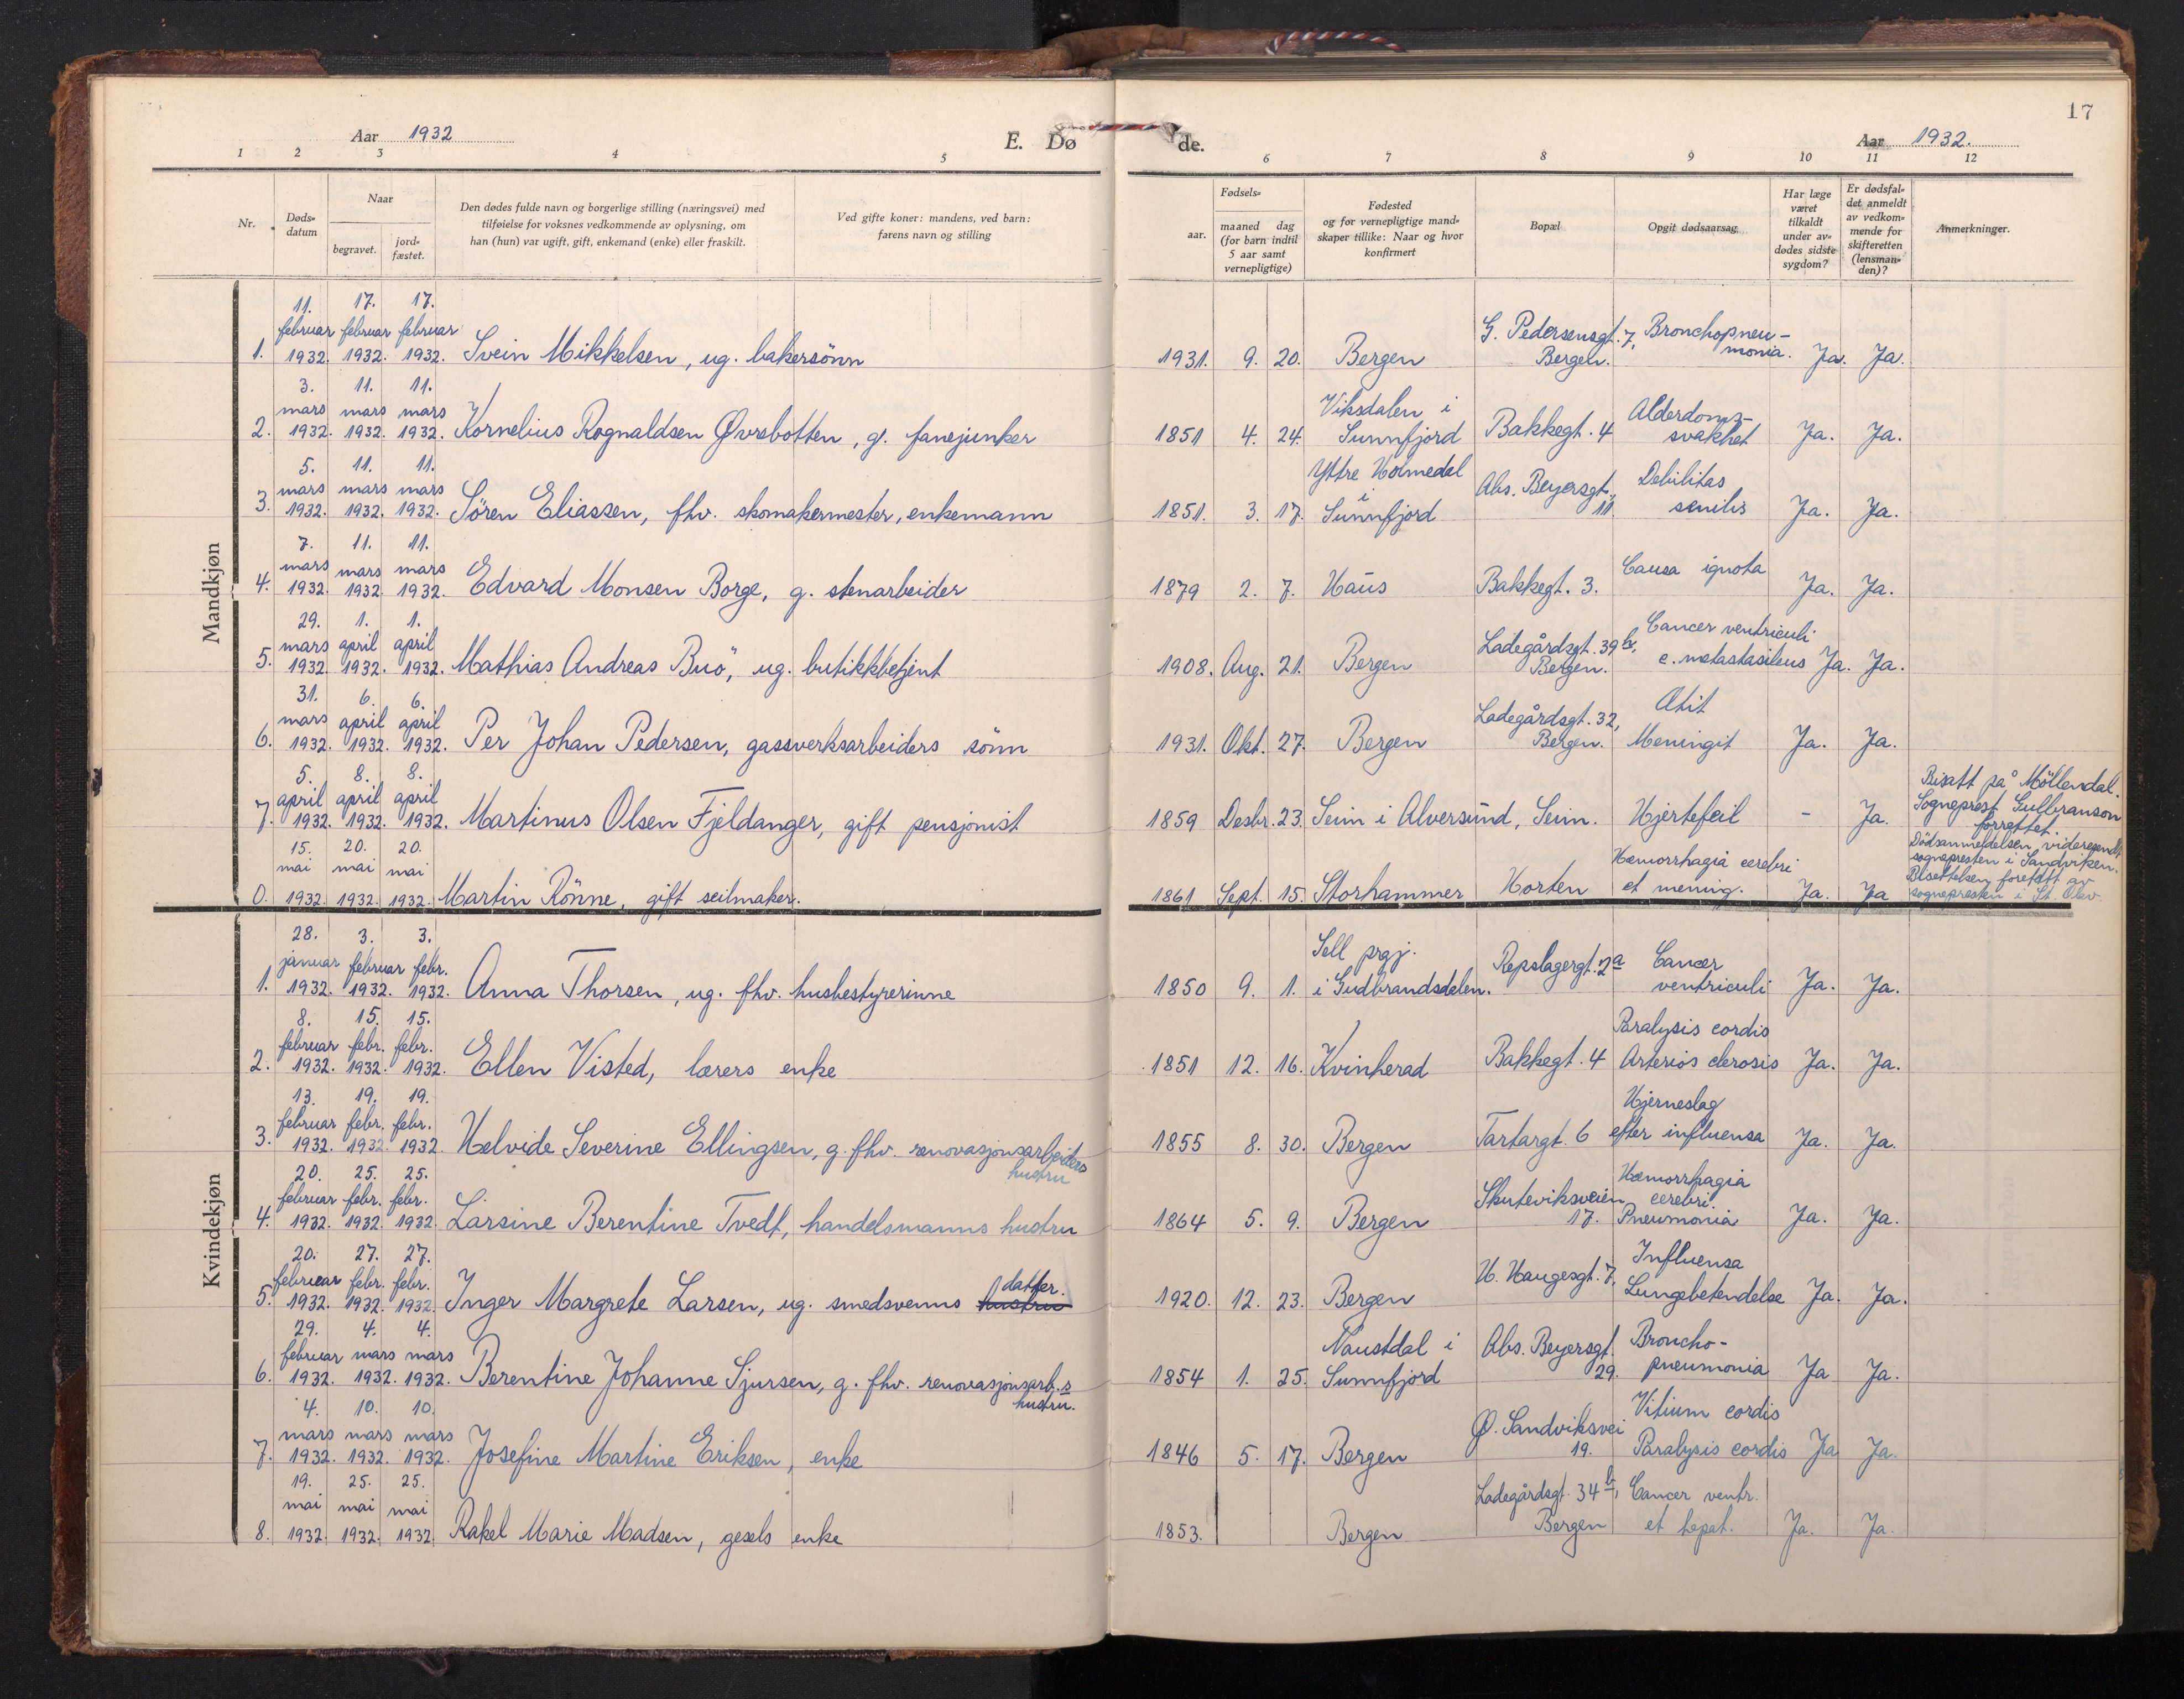 17
Aar 1932
E. Dø de.
Aar 1932.
1 2 3 4 5 6 7 8 9 10 11 12
Nr.
Døds-
datum
Naar
begravet.
jord-
fæstet.
Den dødes fulde navn og borgerlige stilling (næringsvei) med
tilføielse for voksnes vedkommende av oplysning, om
han (hun) var ugift, gift, enkemand (enke) eller fraskilt.
Ved gifte koner: mandens, ved barn:
farens navn og stilling
Fødsels-
aar.
maaned dag
(for barn indtil
5 aar samt
vernepligtige)
Fødested
og for vernepligtige mand-
skaper tillike: Naar og hvor
konfirmert
Bopæl
Opgit dødsaarsag
Har læge
været
tilkaldt
under av-
dødes sidste
sygdom?
Er dødsfal-
det anmeldt
av vedkom-
mende for
skifteretten
(lensman-
den)?
Anmerkninger.
Mandkjøn
11. 17. 17.
februar februar februar G. Pedersensgt. 7, Bronchopneu-
1. 1932. 1932. 1932. Svein Mikkelsen, ug. bakersönn 1931. 9. 20. Bergen Bergen. monia. Ja. Ja.
3. 11. 11.
mars mars mars Viksdalen i Alderdoms-
2. 1932. 1932. 1932. Kornelius Rognaldsen Øvrebotten, g. fanejunker 1851 4. 24. Sunnfjord Bakkegt. 4 svakhet Ja. Ja.
5. 11. 11. Yttre Holmedal
mars mars mars i Abs. Beyersgt. Debilitas
3. 1932. 1932. 1932. Sören Eliassen, fhv. skomakermester, enkemann 1851. 3. 17. Sunnfjord 11. senilis Ja. Ja.
7. 11. 11.
mars mars mars Causa ignota
4. 1932. 1932. 1932. Edvard Monsen Borge, g. stenarbeider 1879 2. 7. Haus Bakkegt. 3. Ja. Ja.
29. 1. 1.
mars april april Ladegårdsgt. 39 b, Cancer ventriculi
5. 1932. 1932. 1932. Mathias Andreas Buö, ug. butikkbetjent 1908. Aug. 21. Bergen Bergen. c. metastasibus Ja. Ja.
31. 6. 6.
mars april april Ladegårdsgt. 32, Otit
6. 1932. 1932. 1932. Per Johan Pedersen, gassverksarbeiders sönn 1931. Okt. 27. Bergen Bergen. Meningit Ja. Ja.
5. 8. 8. Bisatt på Möllendal.
april april april Sogneprest Gulbranson
7. 1932. 1932. 1932. Martinus Olsen Fjeldanger, gift pensjonist 1859 Desbr. 23. Seim i Alversund, Seim. Hjertefeil - Ja. forrettet.
15. 20. 20. Dödsanmeldelsen videresendt
mai mai mai Hæmorrhagia cerebri sognepresten i Sandviken.
0. 1932. 1932. 1932. Martin Rönne, gift seilmaker. 1861 Sept. 15. Storhammer Horten et mening. Ja. Ja Bisettelsen foretatt av
sognepresten i St. Olav.
Kvindekjøn
28. 3. 3.
januar februar febr. Sell prgj. Repslagergt. 2a Cancer
1. 1932. 1932. 1932. Anna Thorsen, ug. fhv. husbestyrerinne 1850 9. 1. i Gudbrandsdalen. ventriculi Ja. Ja.
8. 15. 15.
februar febr. febr. Paralysis cordis
2. 1932. 1932. 1932. Ellen Visted, lærers enke 1851 12. 16. Kvinherad Bakkegt. 4 Arterios clerosis Ja. Ja.
13. 19. 19.
februar febr. febr. Hjerneslag
3. 1932. 1932. 1932. Helvide Severine Ellingsen, g. fhv. renovasjonsarbeiders 1855 8. 30. Bergen Tartargt. 6 efter influensa Ja. Ja.
hustru
20. 25. 25. Hæmorrhagia
februar febr. febr. Skuteviksveien cerebri.
4. 1932. 1932. 1932. Larsine Berentine Tvedt, handelsmanns hustru 1864 5. 9. Bergen 17. Pneumonia Ja. Ja.
20. 27. 27.
februar febr. febr. datter. H. Haugesgt. 7, Influensa
5. 1932. 1932. 1932. Inger Margrete Larsen, ug. smedsvenns hustru 1920. 12. 23. Bergen Lungebetendelse Ja. Ja.
29. 4. 4.
februar mars mars Naustdal i Abs. Beyersgt. Broncho-
6. 1932. 1932. 1932. Berentine Johanne Sjursen, g. fhv. renovasjonsarb.s 1854 1. 25. Sunnfjord 29. pneumonia Ja Ja.
hustru.
4. 10. 10.
mars mars mars Ø. Sandviksvei Vitium cordis
7. 1932. 1932. 1932. Josefine Martine Eriksen, enke 1846 5. 17. Bergen 19. Paralysis cordis Ja Ja.
19. 25. 25.
mai mai mai Ladegårdsgt. 34 b, Cancer ventr.
8. 1932. 1932. 1932. Rakel Marie Madsen, gesels enke 1853. Bergen Bergen et hepat. Ja. Ja.